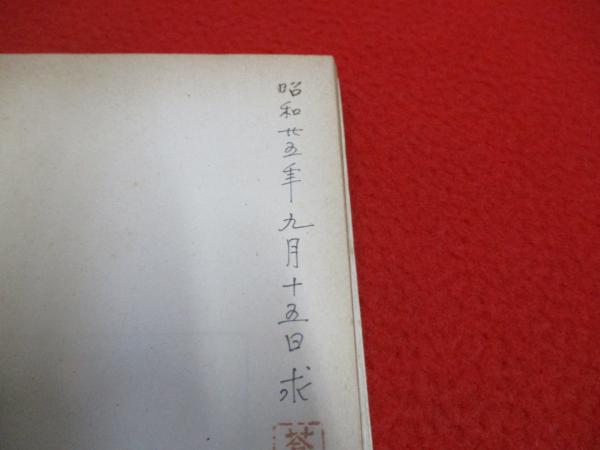 昭和廿五年九月十五日求